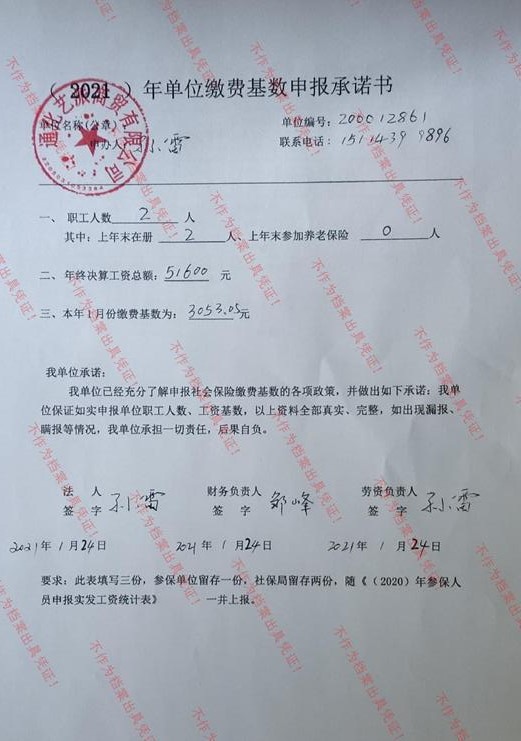 （ 2021 ）年单位缴费基数申报承诺书
单位名称(公章)
单位编号：200012861
申办人：孙雷
联系电话：15114399896
通化艺派商贸有限公司
一、 职工人数 2 人
其中：上年末在册 2 人、上年末参加养老保险 0 人
二、年终决算工资总额：51600 元
三、本年1月份缴费基数为：3053.05元
我单位承诺：
我单位已经充分了解申报社会保险缴费基数的各项政策，并做出如下承诺：我单
位保证如实申报单位职工人数、工资基数，以上资料全部真实、完整，如出现漏报、
瞒报等情况，我单位承担一切责任，后果自负。
法 人 财务负责人 劳资负责人
签 字 孙雷 签 字 邹峰 签 字 孙雷
2021年 1月24日 2021年 1月24日 2021年 1月24日
要求：此表填写三份，参保单位留存一份，社保局留存两份，随《（2020）年参保人
员申报实发工资统计表》 一并上报。
不作为档案出具凭证！